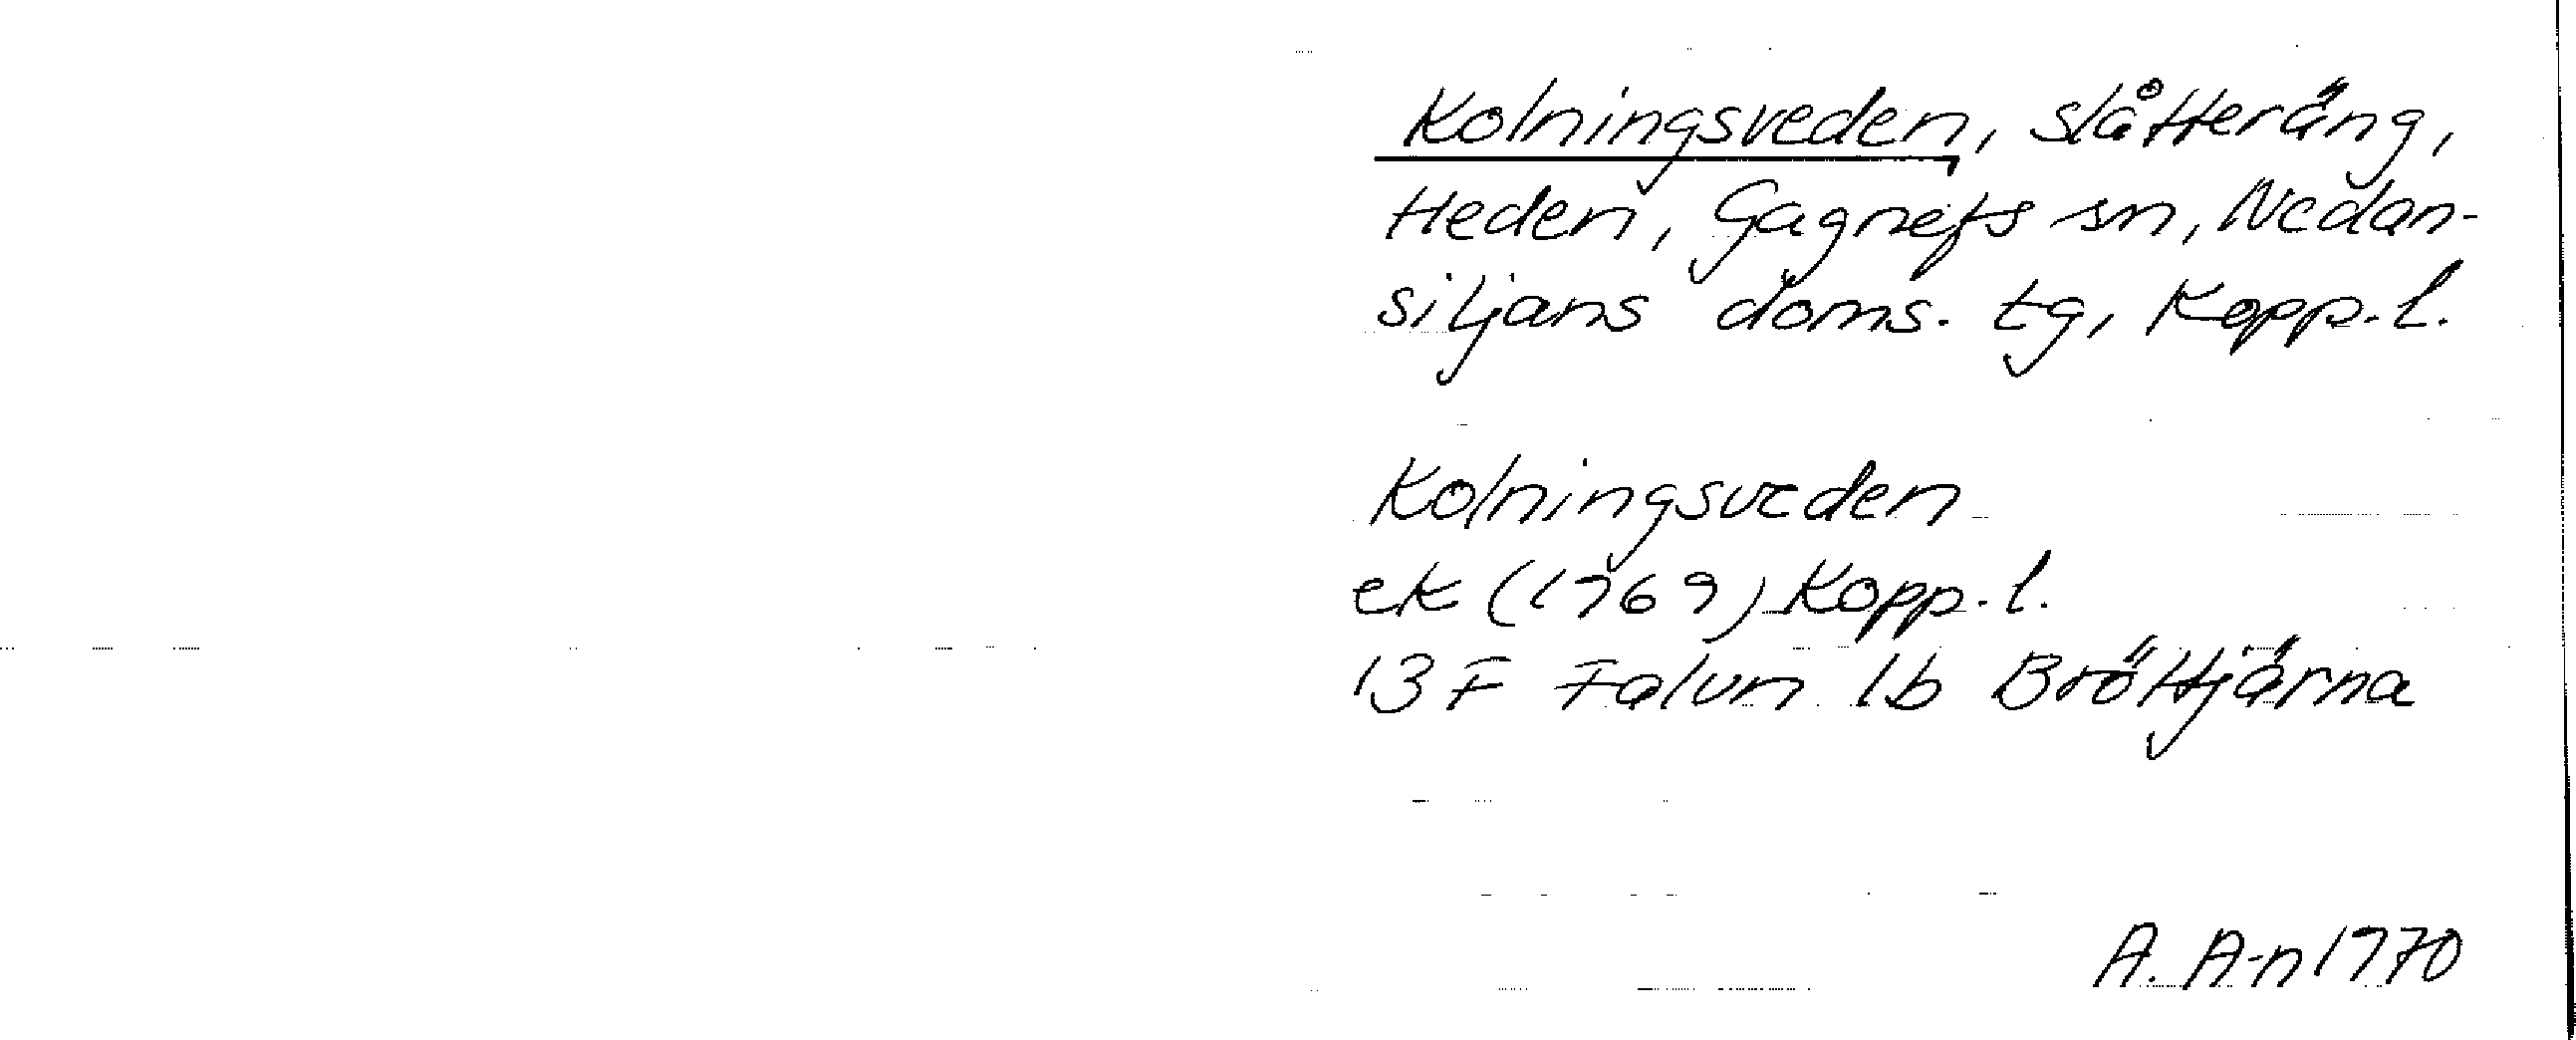 Kolningsveden, slåtteräng,
Heden, Gagnefs sn, Nedan-
siljans doms. tg, Kopp. l.
Kolningsveden
ek (1969) Kopp. l.
13 F Falun 1b Bröttjärna
A. A-n 1970